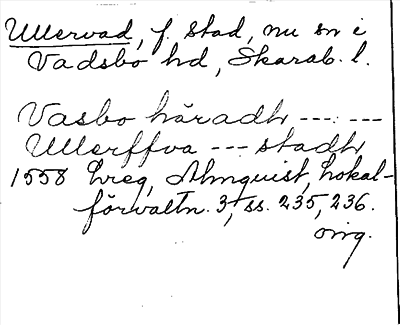 Ullervad, f. stad, nu sn i
Vadsbo hd, Skarab. l.
Vasbo häradh --- ---
Ullerffva --- stadh
1558 hreg, Almquist, Lokal-
förvaltn. 3, ss. 235, 236.
orig.